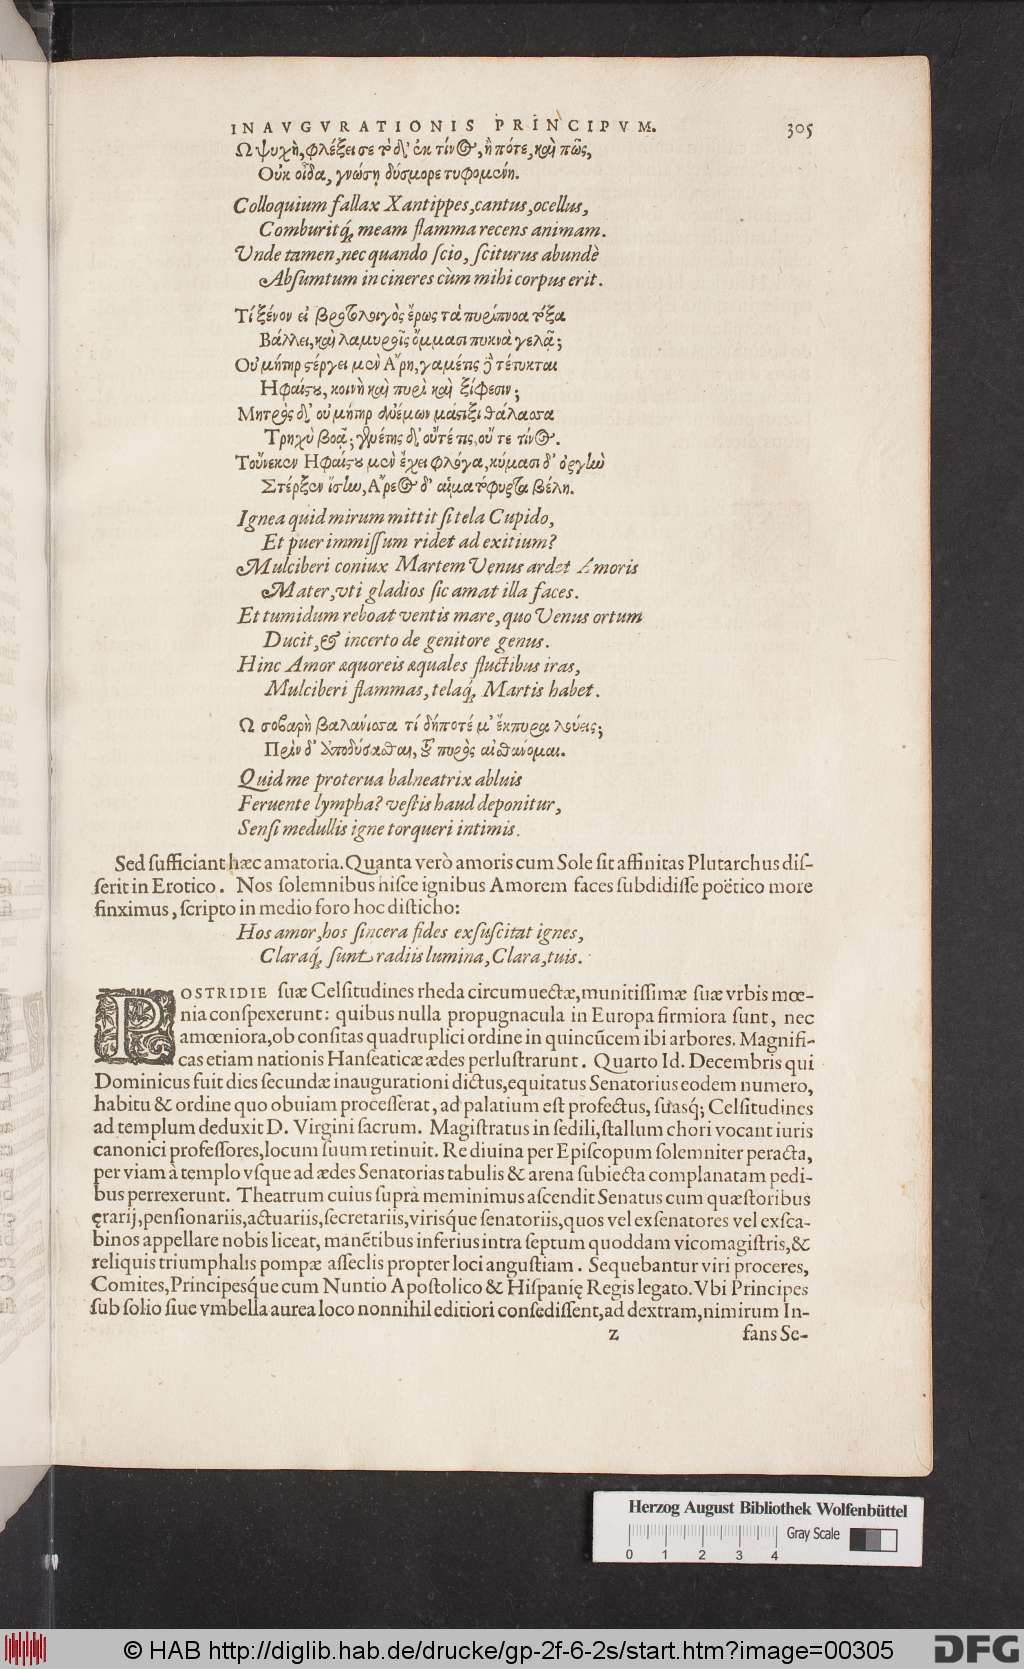 INAVGVRATIONIS PRINCIPVM. 305
Ω ψυχὴ, φλέξει σε τὸ δ᾽ ἐκ τίνος, ἢ πότε, καὶ πῶς,
Οὐκ οἶδα, γνώσῃ δύσμορε τυφομένη.
Colloquium fallax Xantippes, cantus, ocellus,
Comburitq́ȝ meam flamma recens animam.
Vnde tamen, nec quando ſcio, ſciturus abundè
Abſumtum in cineres cùm mihi corpus erit.
Τί ξένον εἰ βροτολοιγὸς ἔρως τὰ πυρίπνοα τόξα
Βάλλει, καὶ λαμυροῖς ὄμμασι πυκνὰ γελᾷ;
Οὐ μήτηρ στέργει μὲν Ἄρη, γαμέτις δὲ τέτυκται
Ηφαίστου, κοινὴ καὶ πυρὶ καὶ ξίφεσιν;
Μητρὸς δ᾽ οὐ μήτηρ ἀνέμων μάστιξι θάλασσα
Τρηχὺ βοᾷ; γενέτης δ᾽ οὔτέ τις, οὔ τε τίνος.
Τοὔνεκεν Ηφαίστου μὲν ἔχει φλόγα, κύμασι δ᾽ ὀργὴν
Στέρξεν ἴσην, Ἄρεος δ᾽ αἱματόφυρτα βέλη.
Ignea quid mirum mittit ſi tela Cupido,
Et puer immiſſum ridet ad exitium?
Mulciberi coniux Martem Venus ardet Amoris
Mater, vti gladios ſic amat illa faces.
Et tumidum reboat ventis mare, quo Venus ortum
Ducit, & incerto de genitore genus.
Hinc Amor æquoreis æquales fluctibus iras,
Mulciberi flammas, telaq́ȝ Martis habet.
Ω σοβαρὴ βαλάνισσα τί δήποτέ μ᾽ ἔκπυρα λούεις;
Πρίν δ᾽ ἀποδύσασθαι, τοῦ πυρὸς αἰσθάνομαι.
Quid me proterua balneatrix abluis
Feruente lympha? veſtis haud deponitur,
Senſi medullis igne torqueri intimis.
Sed ſufficiant hæc amatoria. Quanta verò amoris cum Sole ſit affinitas Plutarchus diſ-
ſerit in Erotico. Nos ſolemnibus hiſce ignibus Amorem faces ſubdidiſſe poëtico more
finximus, ſcripto in medio foro hoc diſticho:
Hos amor, hos ſincera fides exſuſcitat ignes,
Claraq́ȝ ſunt radiis lumina, Clara, tuis.
POSTRIDIE ſuæ Celſitudines rheda circumuectæ, munitiſſimæ ſuæ vrbis mœ-
nia conſpexerunt: quibus nulla propugnacula in Europa firmiora ſunt, nec
amœniora, ob conſitas quadruplici ordine in quincūcem ibi arbores. Magnifi-
cas etiam nationis Hanſeaticæ ædes perluſtrarunt. Quarto Id. Decembris qui
Dominicus fuit dies ſecundæ inaugurationi dictus, equitatus Senatorius eodem numero,
habitu & ordine quo obuiam proceſſerat, ad palatium eſt profectus, ſuasq́ȝ Celſitudines
ad templum deduxit D. Virgini ſacrum. Magiſtratus in ſedili, ſtallum chori vocant iuris
canonici profeſſores, locum ſuum retinuit. Re diuina per Epiſcopum ſolemniter peracta,
per viam à templo vſque ad ædes Senatorias tabulis & arena ſubiecta complanatam pedi-
bus perrexerunt. Theatrum cuius ſuprà meminimus aſcendit Senatus cum quæſtoribus
ęrarij, penſionariis, actuariis, ſecretariis, virisq́ue ſenatoriis, quos vel exſenatores vel exſca-
binos appellare nobis liceat, manētibus inferius intra ſeptum quoddam vicomagiſtris, &
reliquis triumphalis pompæ aſſeclis propter loci anguſtiam. Sequebantur viri proceres,
Comites, Principesq́ue cum Nuntio Apoſtolico & Hiſpanię Regis legato. Vbi Principes
ſub ſolio ſiue vmbella aurea loco nonnihil editiori conſediſſent, ad dextram, nimirum In-
z fans Se-
Herzog August Bibliothek Wolfenbüttel
Gray Scale
0 1 2 3 4
© HAB http://diglib.hab.de/drucke/gp-2f-6-2s/start.htm?image=00305
DFG